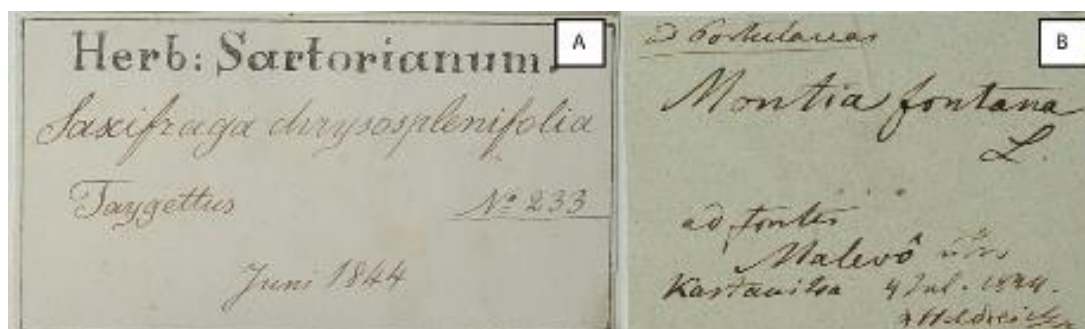 Herb: Sartorianum.
A
Saxifraga chrysosplenifolia
Taygettus
Nº 233
Juni 1844
B
ad Portulaceas
Montia fontana
L.
ad fontes
Malevô
Kastanitsa 4 Jul. 1844.